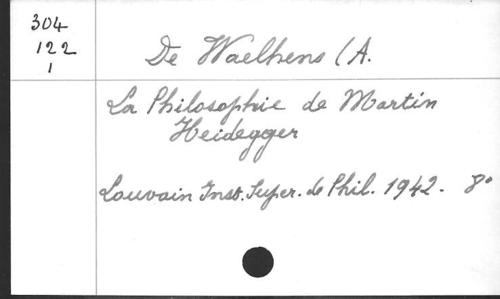 304
122
1
De Waelhens (A.
La Philosophie de Martin
Heidegger
Louvain Inst. Super. de Phil. 1942. 8°